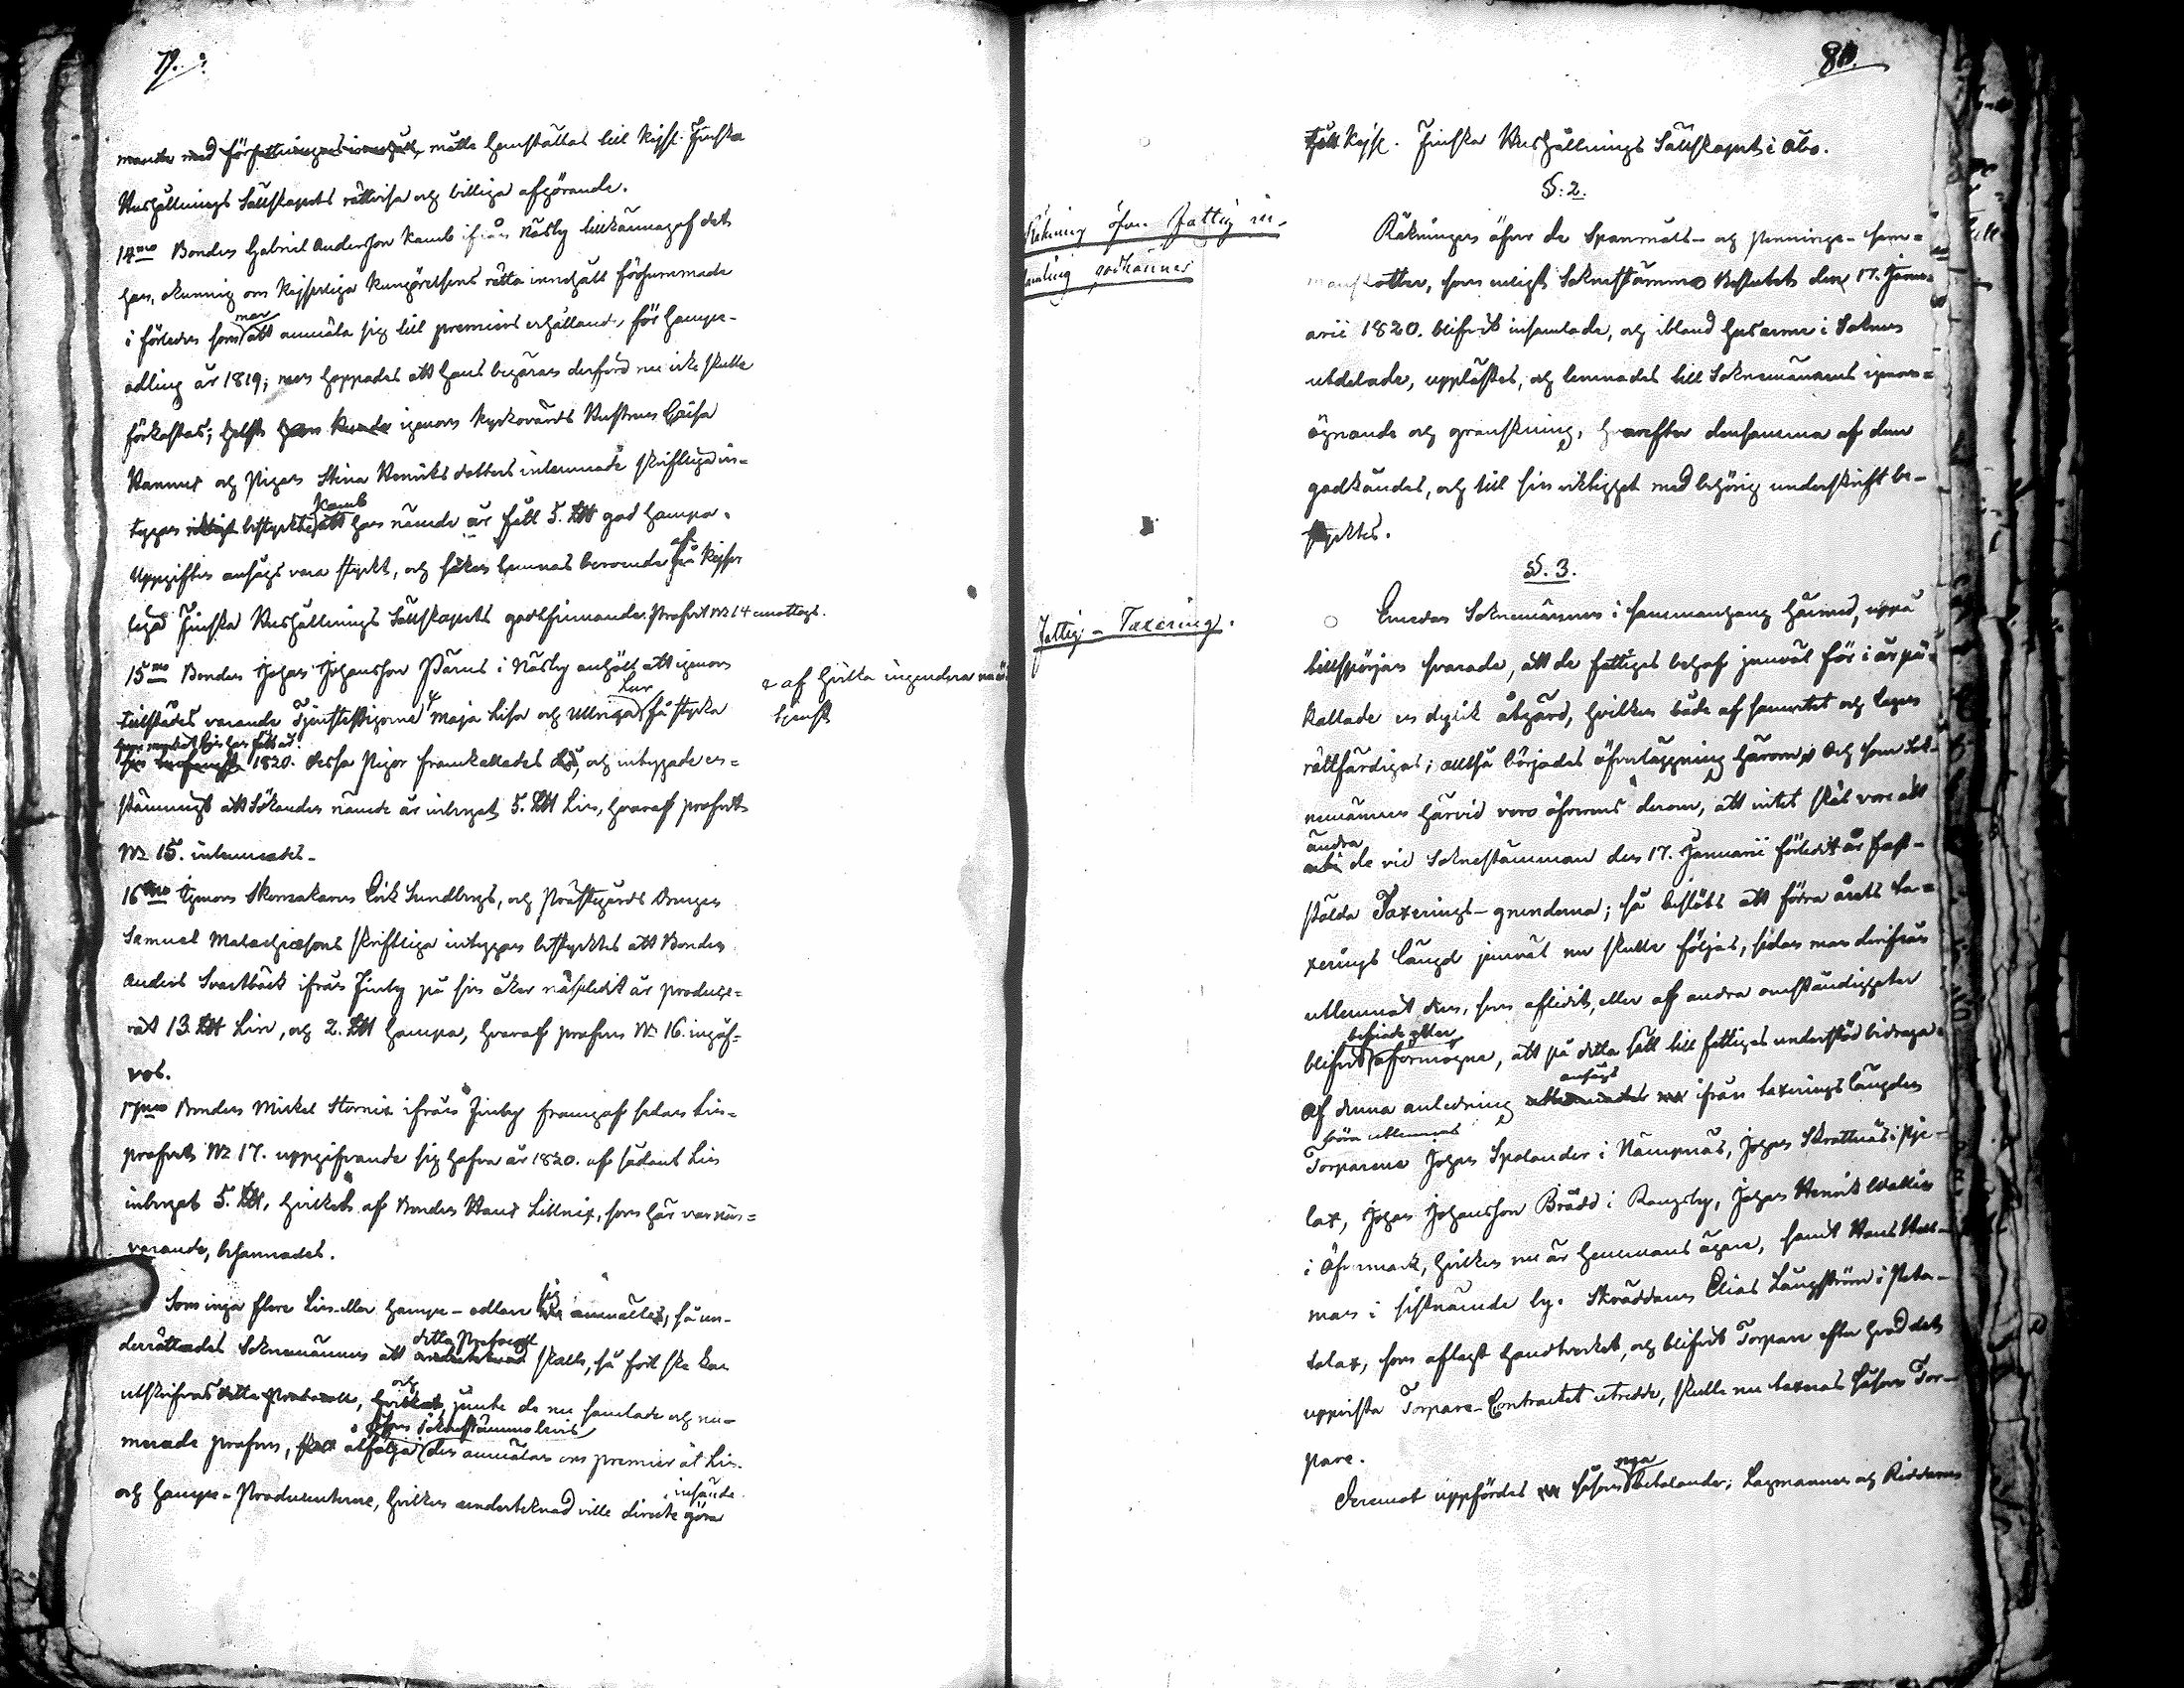 79.
mande med författningens innehåll, måtte hemställas till Kejsl. Finska
Hushållnings Sällskapets rättvisa och billiga afgörande.
14mo Bonden Gabriel Andersson Kamb ifrån Näsby tillkännagaf det
han, okunnig om Kejserliga Kungörelsens rätta innehåll försummade
mar
i förledne som att anmäla sig till premiens erhållande, för hampe-
odling år 1819; men hoppades att hans begäran derföre nu icke skulle
förkastas; helst han kunde igenom Kyrkovärds Hustrun Caisa
Hannus och Pigan Stina Henriks dotters inlemnade skriftliga in-
Kamb
tygen bestyrkte att han nämde år fått 5. L℔ god hampa.
Uppgiften ansågs vara styrkt, och saken lemnas beroende på Kejser
liga Finska Hushållnings Sällskapets godtfinnande. Profvet No 14 emottogs.
15mo Bonden Johan Johansson Pärus i Näsby anhöll att igenom
tillstädes varande Tjenstepigorne Maja Lisa och Ulrica få styrka
af hvilka ingendera
tjenst
huru mycket Lin han fått
1820. Dessa Pigor framkallades då, och intygade en-
stämmigt att Sökanden nämde år inbergat 5. L℔ Lin, hvaraf profvet
No 15. inlemnades.
16mo Igenom Skomakaren Erik Sundbergs, och Prästegårds Drengen
Samuel Malachiæsons skriftliga intygen bestyrktes att Bonden
Anders Svartbäck ifrån Finby på sin åker näsledit år produce-
rat 13. L℔ Lin, och 2. L℔ hampa, hvaraf profven No 16. ingåf-
vos.
17mo Bonden Mickel Stornix ifrån Finby framgaf sedan Lin-
profvet No 17. uppgifvande sig hafva år 1820. af sådant Lin
inbergat 5. L℔, hvilket af Bonden Hans Lillnix, som här var när-
varande, besannades.
Som inga flere Lin- eller hampe-odlare sig anmälte, så un-
detta Protocoll
derrättades Sokenemännen att skall, så fort ske kan
och
utskrifvas detta Protocoll, hvilket, jemte de nu samlade och nu-
sokestämmo bevis
merade profven, skall åtfölja den anmälan om premier åt Lin-
insände
och Hampe-Producenterne, hvilken undertecknad ville directe göra
80.
till Kejsl. Finska Hushållnings Sällskapet i Åbo.
§. 2.
Räkning öfver Fattig in-
samling godkännes
Räkningen öfver de Spanmåls- och Pennings-sam-
manskotter, som enligt Soknestämmo Beslutet den 17. Janu-
arii 1820. blifvit insamlade, och ibland husarme i Soknen
utdelade, upplästes, och lemnades till Soknemännens igenom-
ögnande och granskning, hvarefter densamma af dem
godkändes, och till sin riktighet med behörig underskrift be-
styrktes.
§. 3.
Fattig-Taxering.
Emedan Soknemännen i sammanhang härmed, uppå
tillspörjan svarade, att de fattiges behof jemväl för i år på-
kallade en dylik åtgärd, hvilken både af samvetet och lagen
rättfärdigas; alltså börjades öfverläggning härom. Och som Sok-
nemännen härvid voro öfverens derom, att intet skäl vore att
ändra
de vid Soknestämman den 17. Januarii förledit år fast-
stälda Taxerings-grunderna; så beslöts att förra årets ta-
xerings längd jemväl nu skulle följas, sedan man derifrån
utlemnat den, som aflidit, eller af andra omständigheter
befriade eller
blifvit oförmögne, att på detta sätt till fattiges understöd bidraga.
ansågs
Af denna anledning ifrån taxerings längden
böra utlemnas
Torparene Johan Spolander i Nämpnäs, Johan Skrattnäs i Pje-
lax, Johan Johansson Brädd i Rangsby, Johan Henrik Wallin
i Öfvermark, hvilken nu är hemmans ägare, samt Hans Hart-
man i sistnämde by. Skräddaren Elias Långström i Pota-
talax, som aflagt handtverket, och blifvit Torpare efter hvad det
uppvista Torpare-Contractet utredde, skulle nu taxeras såsom Tor-
pare.
nya
Deremot uppfördes såsom betalande; Lagmannen och Riddaren